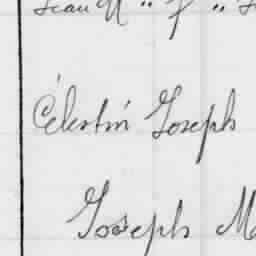 Jean M " f "
Célestin Joseph
Joseph M